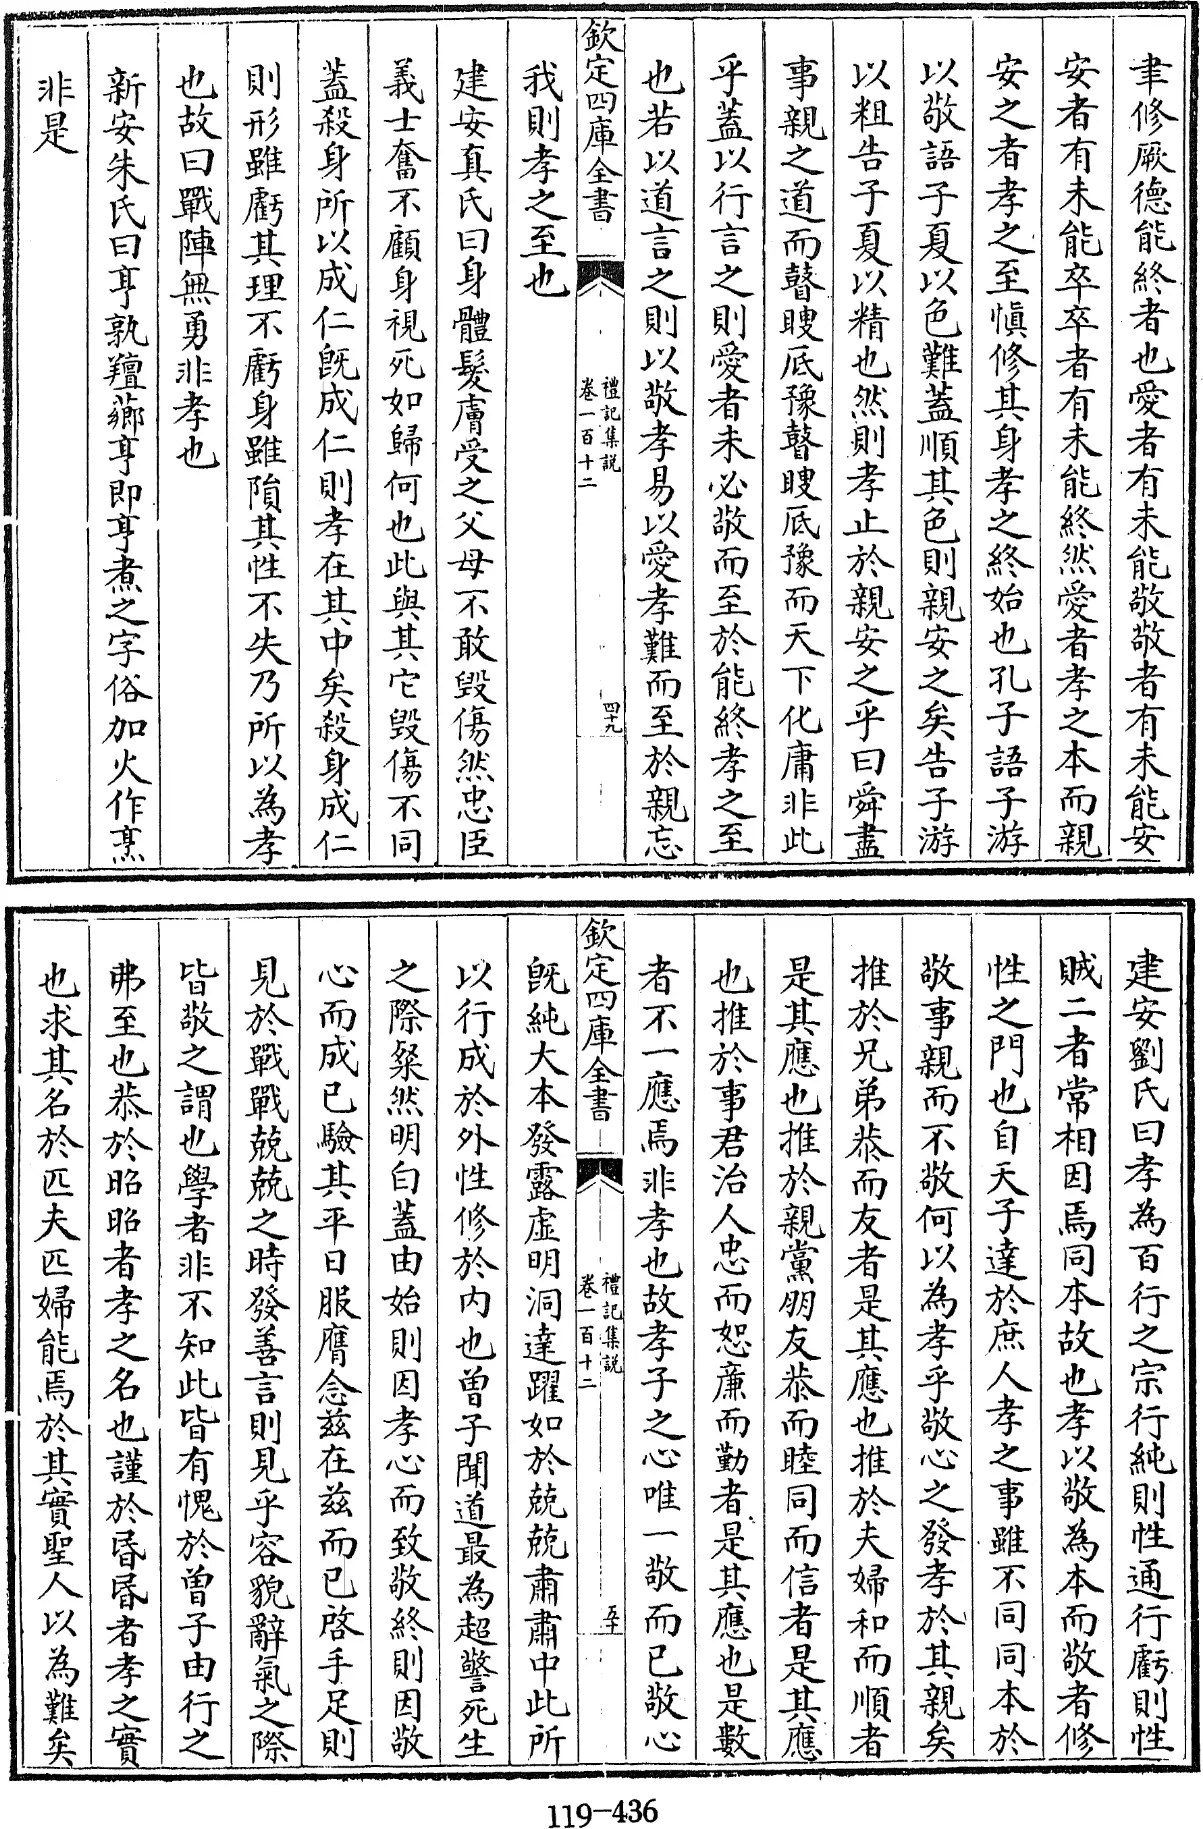 聿修厥德能終者也愛者有未能敬敬者有未能安
安者有未能卒卒者有未能終然愛者孝之本而親
安之者孝之至慎修其身孝之終始也孔子語子游
以敬語子夏以色難蓋順其色則親安之矣告子游
以粗告子夏以精也然則孝止於親安之乎曰舜盡
事親之道而瞽瞍底豫瞽瞍底豫而天下化庸非此
乎蓋以行言之則愛者未必敬而至於能終孝之至
也若以道言之則以敬孝易以愛孝難而至於親忘
欽定四庫全書
禮記集說
卷一百十二
四十九
我則孝之至也
建安真氏曰身體髮膚受之父母不敢毀傷然忠臣
義士奮不顧身視死如歸何也此與其它毀傷不同
蓋殺身所以成仁既成仁則孝在其中矣殺身成仁
則形雖虧其理不虧身雖隕其性不失乃所以為孝
也故曰戰陣無勇非孝也
新安朱氏曰亨孰羶薌亨即亨煮之字俗加火作烹
非是
建安劉氏曰孝為百行之宗行純則性通行虧則性
賊二者常相因焉同本故也孝以敬為本而敬者修
性之門也自天子達於庶人孝之事雖不同同本於
敬事親而不敬何以為孝乎敬心之發孝於其親矣
推於兄弟恭而友者是其應也推於夫婦和而順者
是其應也推於親黨朋友恭而睦同而信者是其應
也推於事君治人忠而恕廉而勤者是其應也是數
者不一應焉非孝也故孝子之心唯一敬而已敬心
欽定四庫全書
禮記集說
卷一百十二
五十
既純大本發露虛明洞達躍如於兢兢肅肅中此所
以行成於外性修於內也曾子聞道最為超警死生
之際粲然明白蓋由始則因孝心而致敬終則因敬
心而成已驗其平日服膺念茲在茲而已啓手足則
見於戰戰兢兢之時發善言則見乎容貌辭氣之際
皆敬之謂也學者非不知此皆有愧於曾子由行之
弗至也恭於昭昭者孝之名也謹於昏昏者孝之實
也求其名於匹夫匹婦能焉於其實聖人以為難矣
119-436